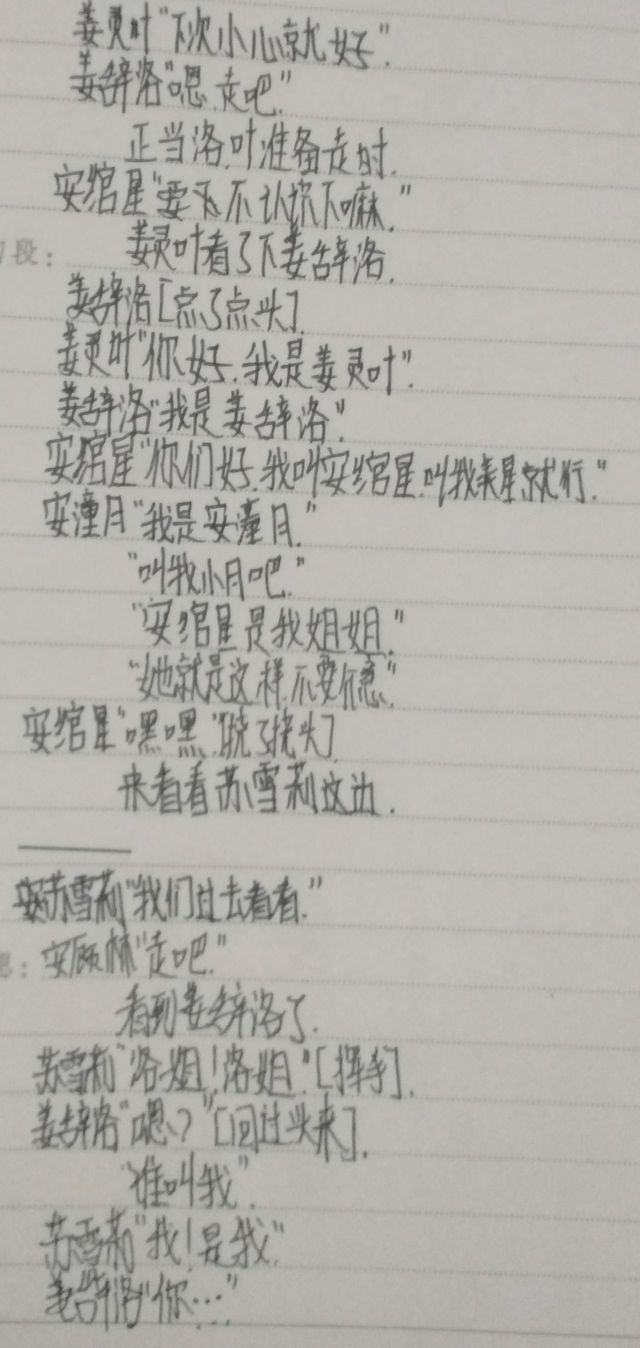 姜灵叶"下次小心就好".
姜辞洛"嗯.走吧."
正当洛.叶准备走时.
安绾星"要不不认识下嘛."
段：
姜灵叶看了下姜辞洛.
姜辞洛[点了点头].
姜灵叶"你好.我是姜灵叶".
姜辞洛"我是姜辞洛".
安绾星"你们好.我叫安绾星.叫我星就行."
安潼月"我是安潼月."
"叫我小月吧."
"安绾星是我姐姐."
"她就是这样.不要介意."
安绾星"嘿嘿."[挠了挠头]
来看看苏雪莉这边.
苏雪莉"我们过去看看."
安顾林"走吧."
看到姜辞洛了.
苏雪莉"洛姐!洛姐."[挥手].
姜辞洛"嗯?"[回过头来].
"谁叫我".
苏雪莉"我!是我"
姜辞洛"你…"